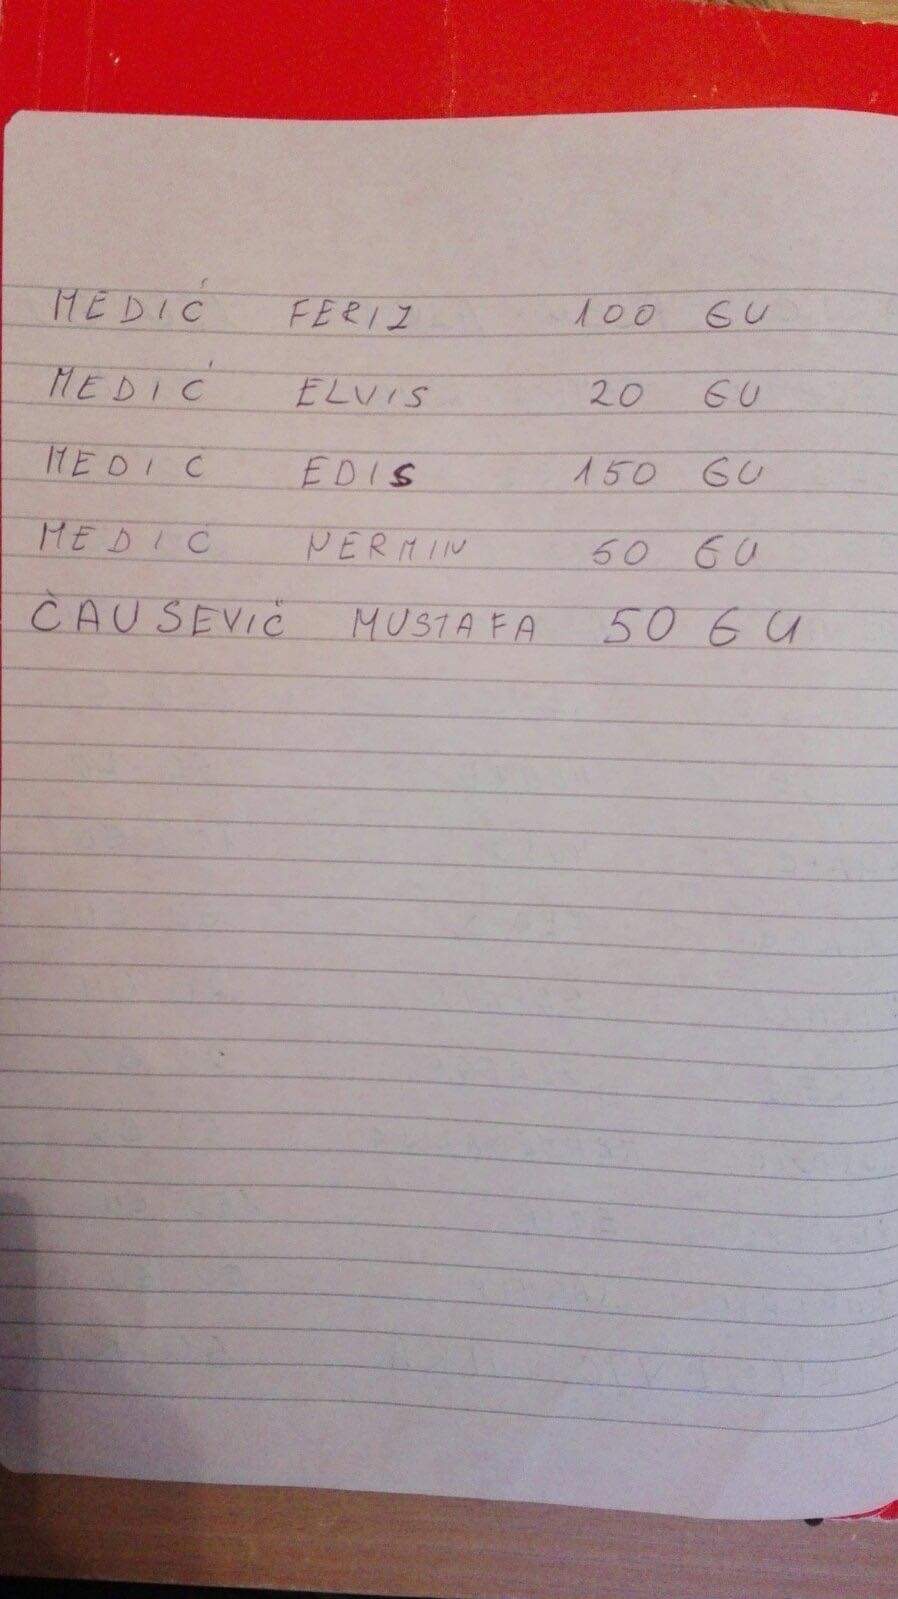 MEDIĆ FERIZ 100 EU
MEDIĆ ELVIS 20 EU
MEDIC EDIS 150 EU
MEDIĆ NERMIN 50 EU
ČAUSEVIČ MUSTAFA 50 EU